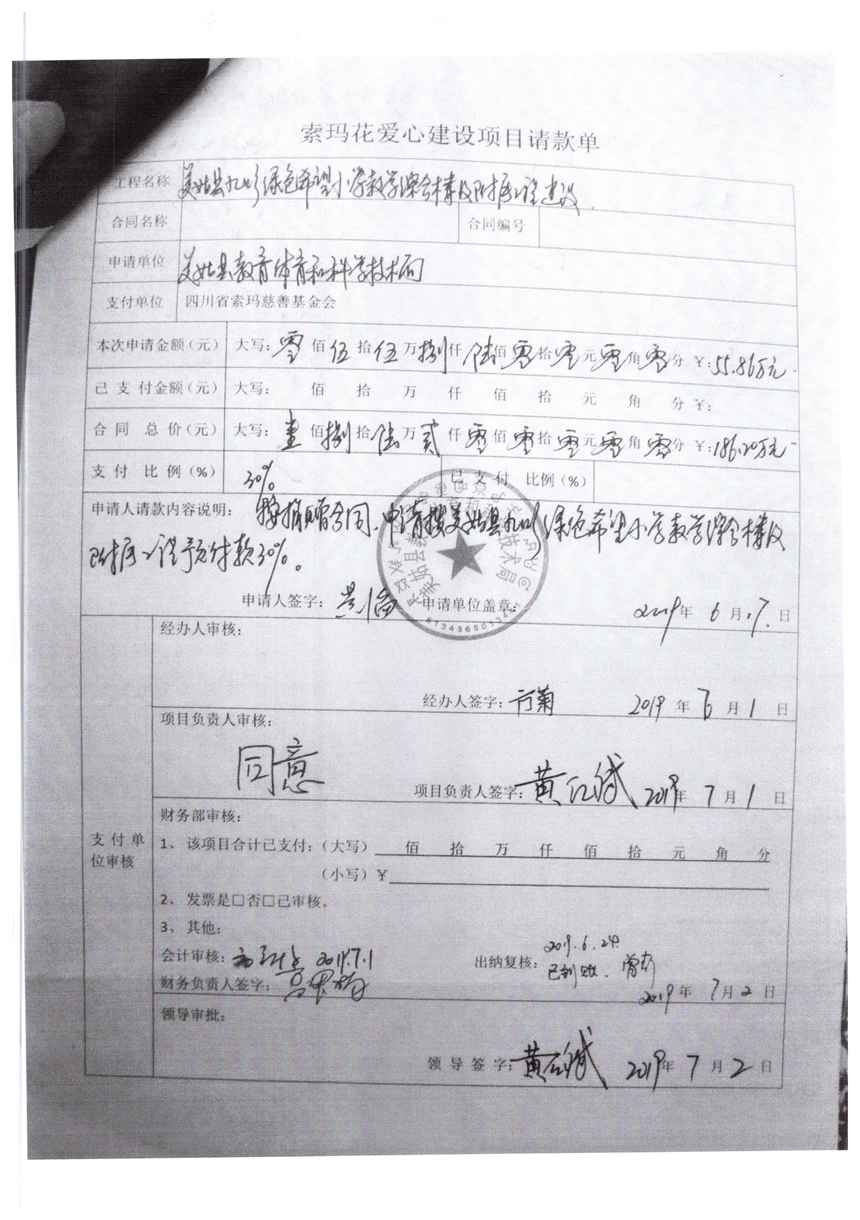 索玛花爱心建设项目请款单
工程名称 美姑县九口乡绿色希望小学教学综合楼及附属工程建设
合同名称 合同编号
申请单位 美姑县教育体育和科学技术局
支付单位 四川省索玛慈善基金会
本次申请金额(元) 大写: 零佰伍拾伍万捌仟陆佰零拾零元零角零分 ¥:55.86万元
已支付金额(元) 大写: 佰 拾 万 仟 佰 拾 元 角 分 ¥:
合同总价(元) 大写: 壹佰捌拾陆万贰仟零佰零拾零元零角零分 ¥:186.20万元
支付比例(%) 30% 已支付比例(%)
申请人请款内容说明: 按捐赠合同,申请拨美姑县九口乡绿色希望小学教学综合楼及
附属工程预付款30%。
申请人签字: 申请单位盖章: 2019年6月17日
经办人审核:
经办人签字: 2019年7月1日
项目负责人审核:
同意
项目负责人签字: 黄红斌 2019年7月1日
支付单位审核
财务部审核:
1、该项目合计已支付:(大写) 佰 拾 万 仟 佰 拾 元 角 分
(小写)¥
2、发票是□否□已审核。
3、其他:
会计审核: 2019.7.1 出纳复核: 2019.6.24
财务负责人签字: 2019年7月2日
领导审批:
领导签字: 黄红斌 2019年7月2日